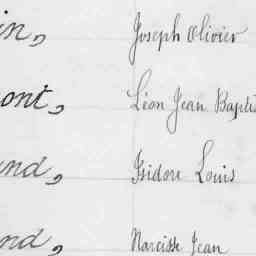 in, Joseph Olivier
ont, Léon Jean Baptis
and, Isidore Louis
and, Narcisse Jean